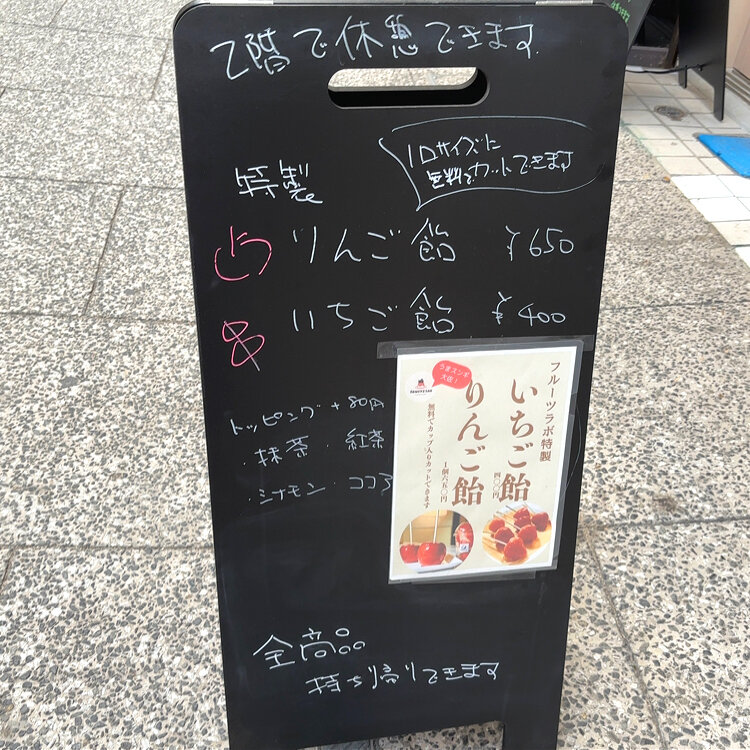 2階で休憩できます
1口サイズに
無料でカットできます
特製
りんご飴 ¥650
いちご飴 ¥400
トッピング +80円
・抹茶・紅茶
・シナモン・ココア
フルーツラボ特製
いちご飴
四〇〇円
りんご飴
1個六五〇円
無料でカップ入りカットできます
全商品
持ち帰りできます